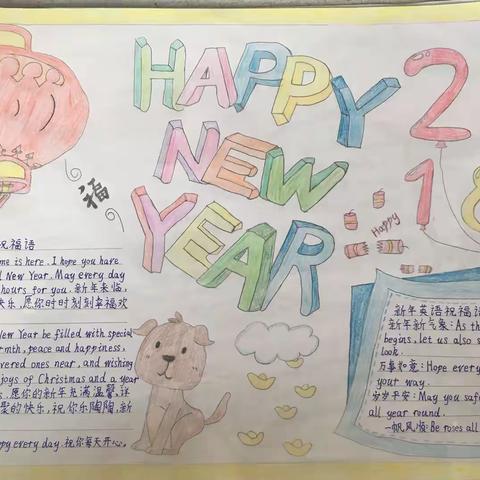 HAPPY
NEW
YEAR
2
1 8
福
Happy
祝福语
me is here. I hope you have
New Year. May every day
hours for you. 新年来临,
快乐,愿你时时刻刻幸福欢
New Year be filled with special
rmth, peace and happiness,
vered ones near, and wishing
joys of Christmas and a year
愿你的新年充满温馨,详
聚的快乐,祝你乐陶陶,新
ppy every day. 祝你每天开心,
新年英语祝福语
新年新气象: As th
begins, let us also s
look.
万事如意: Hope every
your way.
岁岁平安: May you safe
all year round.
一帆风顺: Be roses all